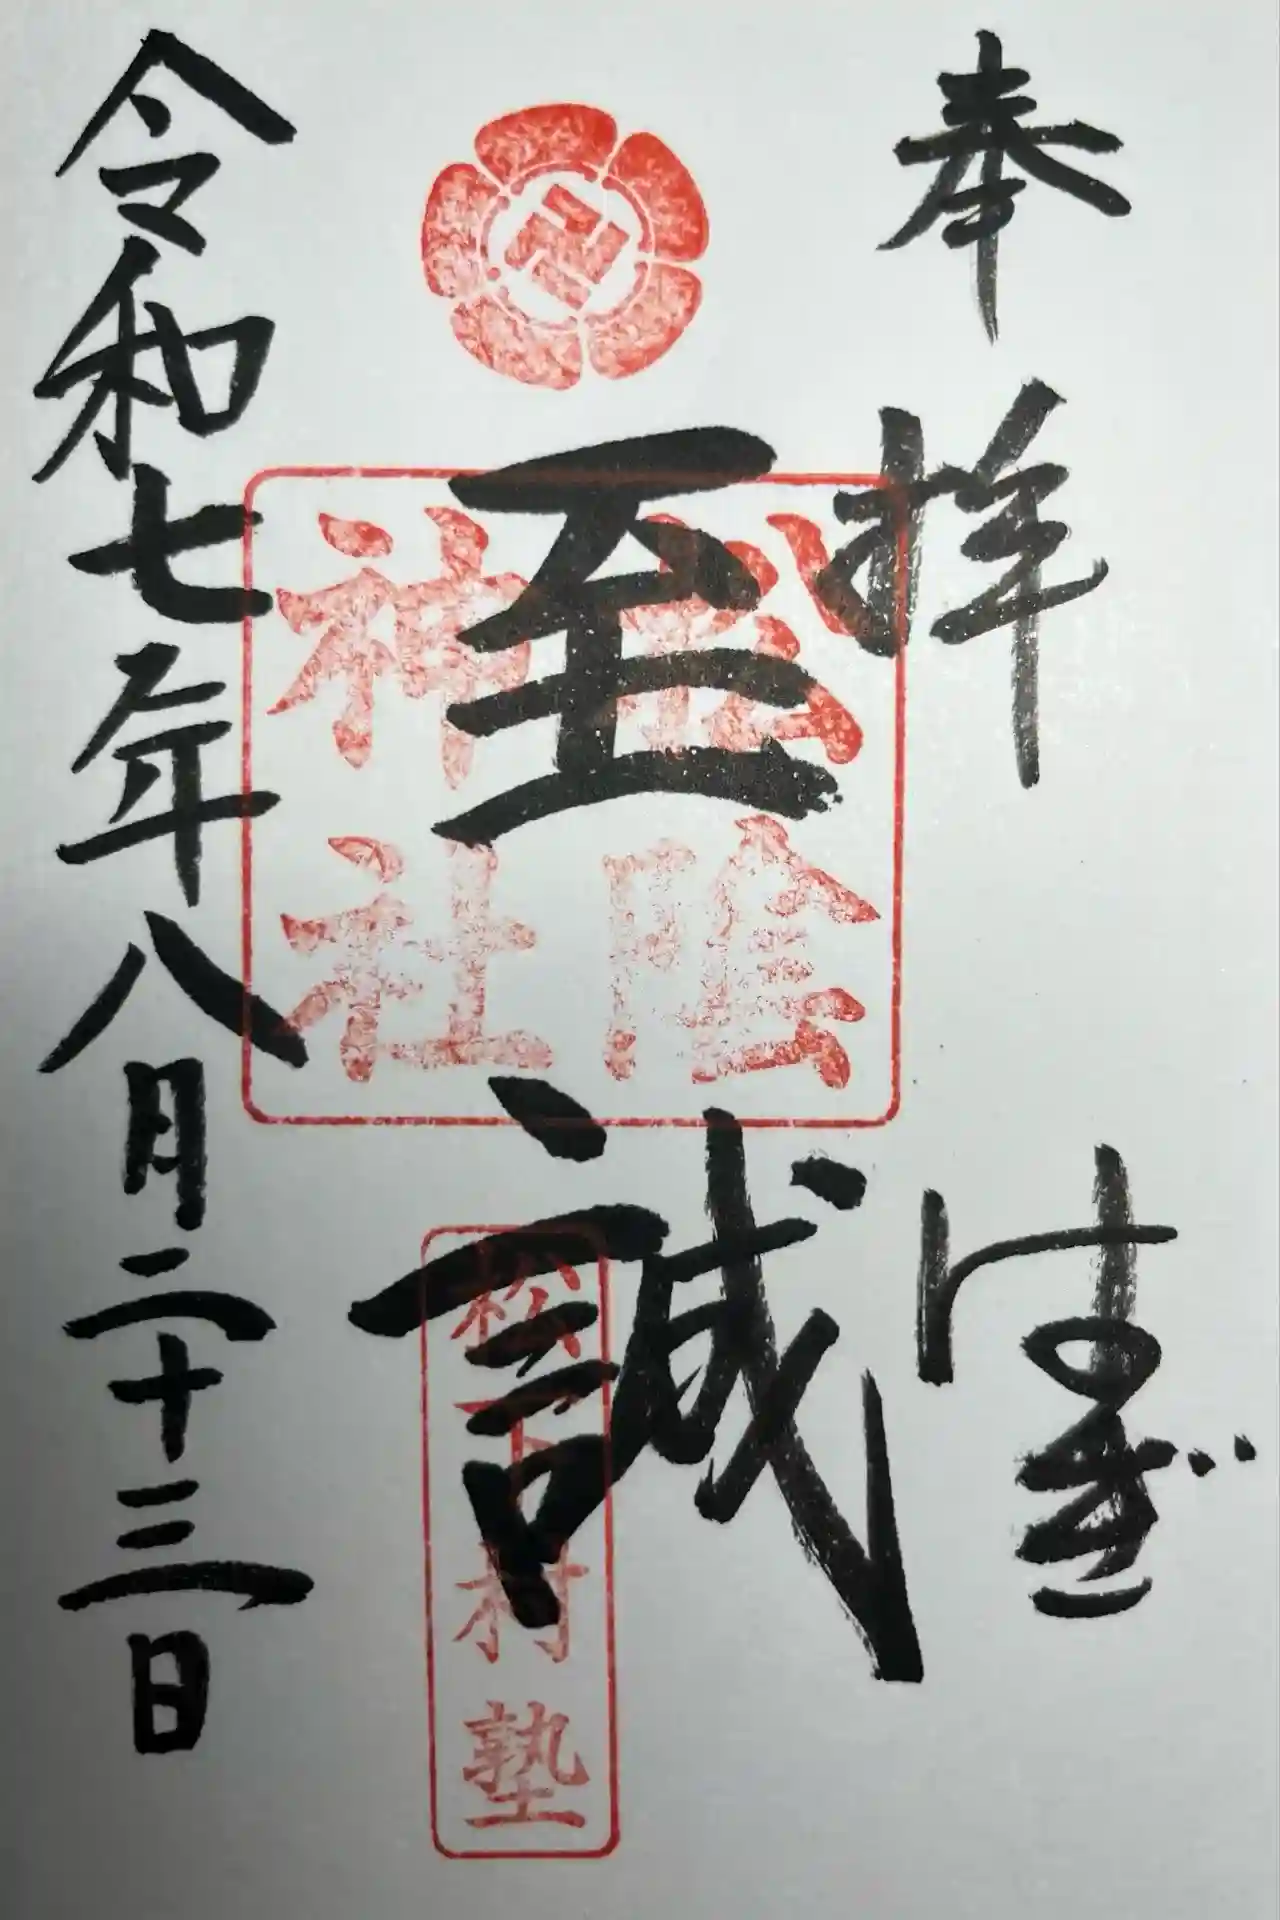 奉拝
はぎ
至誠
松陰
神社
松下村塾
令和七年八月二十三日